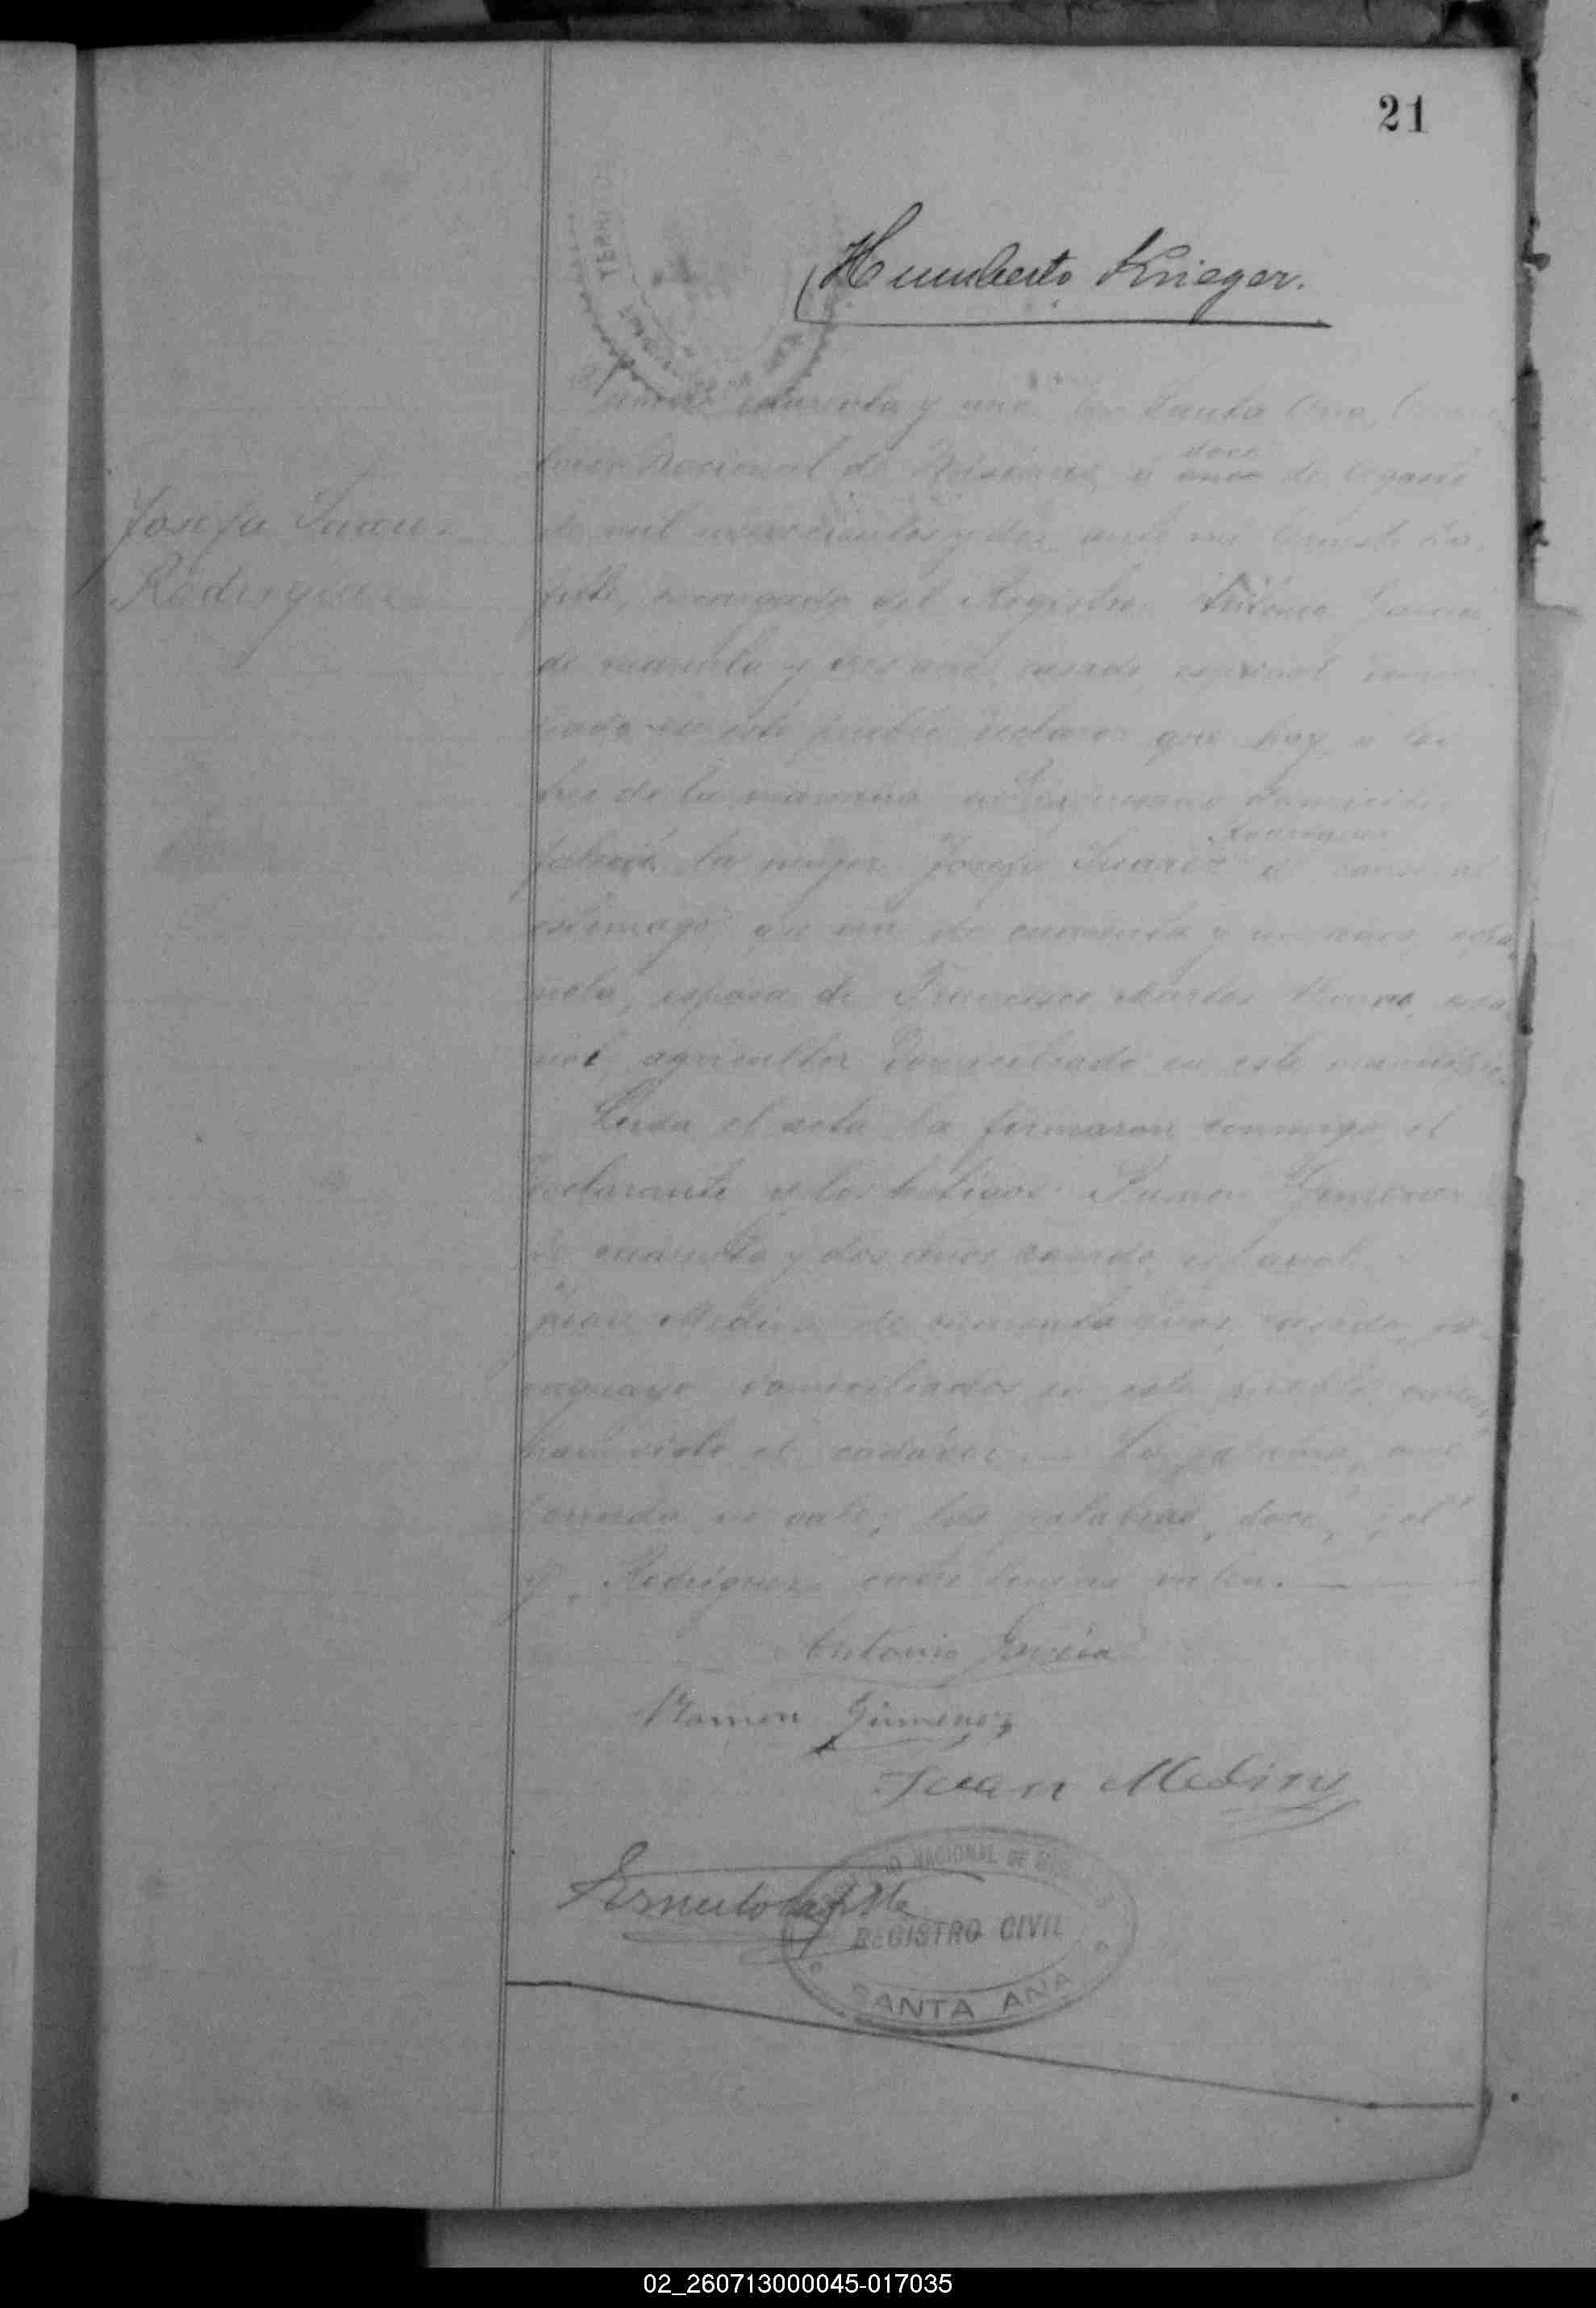 21
Humberto Krieger.
TERRITO
Josefa Suarez
Rodriguez
Número cuarenta y uno. En Santa Ana, Terri
torio Nacional de Misiones, a doce once de Agosto
de mil novecientos y diez ante mi Ernesto La
fitte, encargado del Registro, Antonio Garcia
de cuarenta y tres años, casado, español domici
liado en este pueblo declaró que hoy a las
tres de la mañana en domicilio
falleció la mujer Josefa Suarez Rodriguez de cancer al
estomago, que era de cuarenta y un años, espa
ñola, esposa de Francisco espa
ñol agricultor domiciliado en este municipio.
Leida el acta la firmaron conmigo el
declarante y los testigos Ramon Jimenez
de cuarenta y dos años casado, español
y Juan Medina de cuarenta años, casado, pa
raguayo domiciliados en este pueblo quienes
han visto el cadaver. — La palabra, once
borrada no vale; las palabras, doce, "al"
y Rodriguez entre lineas valen.
Antonio Garcia
Ramon Jimenez
Juan Medina
Ernesto Lafitte
NACIONAL DE
REGISTRO CIVIL
SANTA ANA
02_260713000045-017035